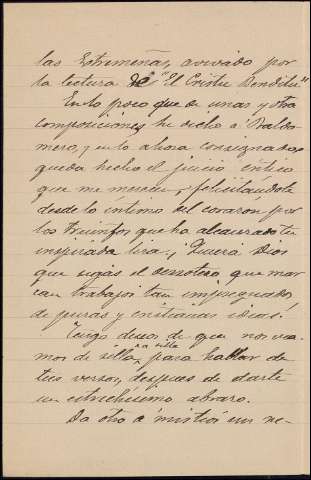 las Extremeñas, avivado por
la lectura de "El Cristu Benditu"
En lo poco que de unas y otra
composiciones he dicho á Baldo
mero, y en lo ahora consignado,
queda hecho el juicio crítico
que me merecen, felicitándote
desde lo íntimo del corazón por
los triunfos que ha alcanzado tu
inspirada lira. ¡Quiera Dios
que sigas el derrotero que mar
can trabajos tan impregnados
de puras y cristianas ideas!
Tengo deseos de que nos vea
mos de silla a silla para hablar de
tus versos, despues de darte
un estrechísimo abrazo.
Da otro á mi tio y un re-